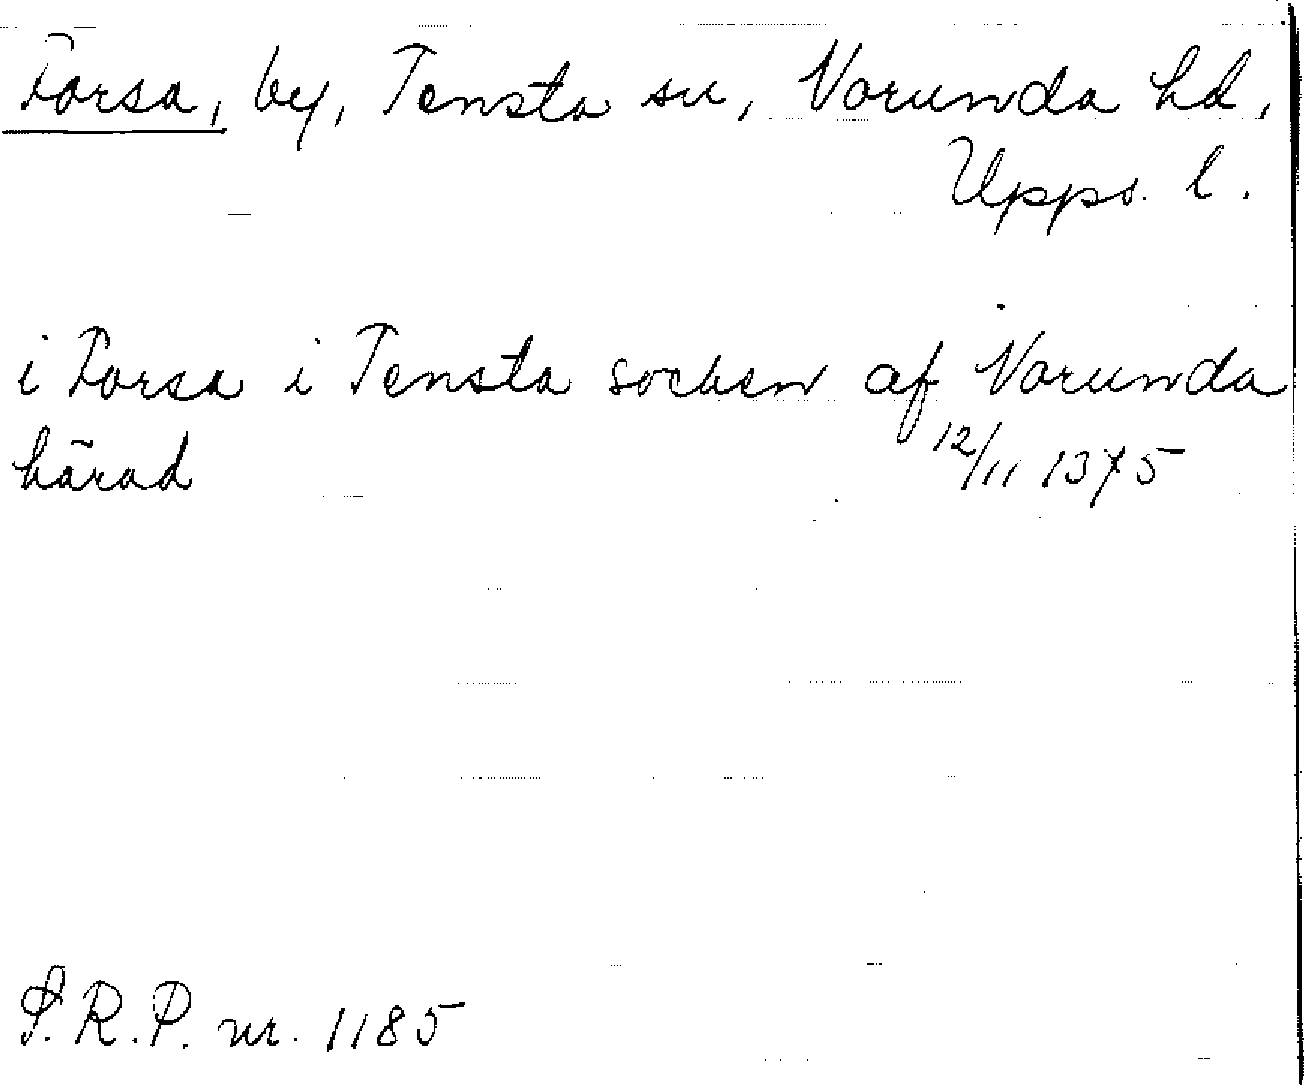 Forsa, by, Tensta sn, Norunda hd,
Upps. l.
i Forsa i Tensta socken af Norunda
härad 12/11 1375
S.R.P. nr. 1185